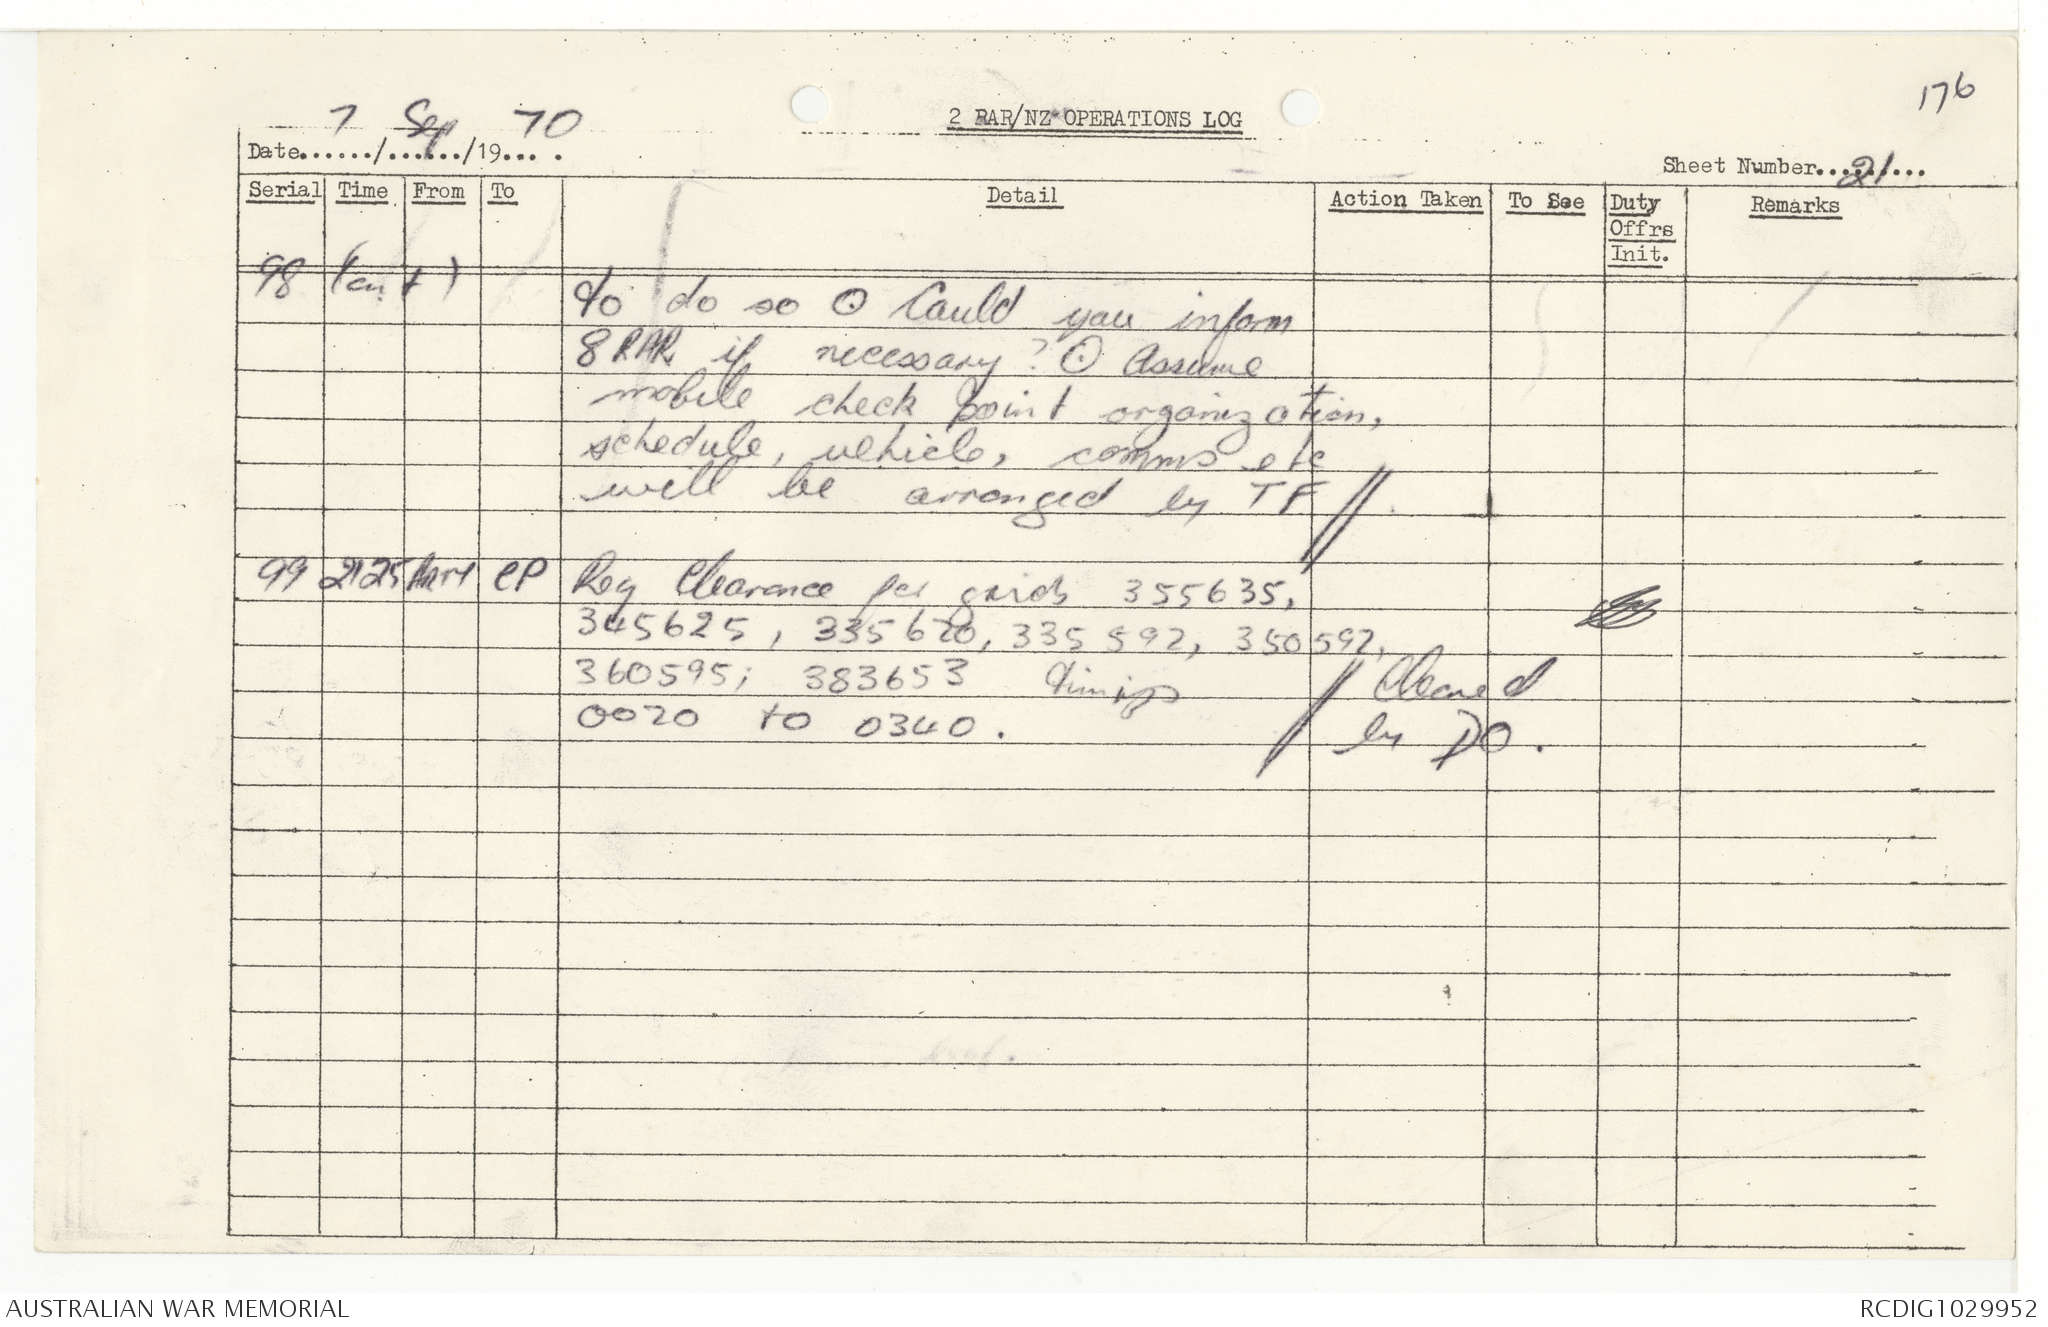 176
7 Sep 70
2 RAR/NZ OPERATIONS LOG
Date....../....../19... .
Sheet Number...21...
Serial Time From To Detail Action Taken To See Duty Offrs Init. Remarks
98 (cont) to do so ⊙ Could you inform
8 RAR if necessary? ⊙ Assume
mobile check point organization,
schedule, vehicle, comms etc
will be arranged by TF //
99 2125 CP Req Clearance for grids 355635,
345625, 335620, 335592, 350592,
360595; 383653 timings // Cleared
0020 to 0340. by DO.
AUSTRALIAN WAR MEMORIAL
RCDIG1029952